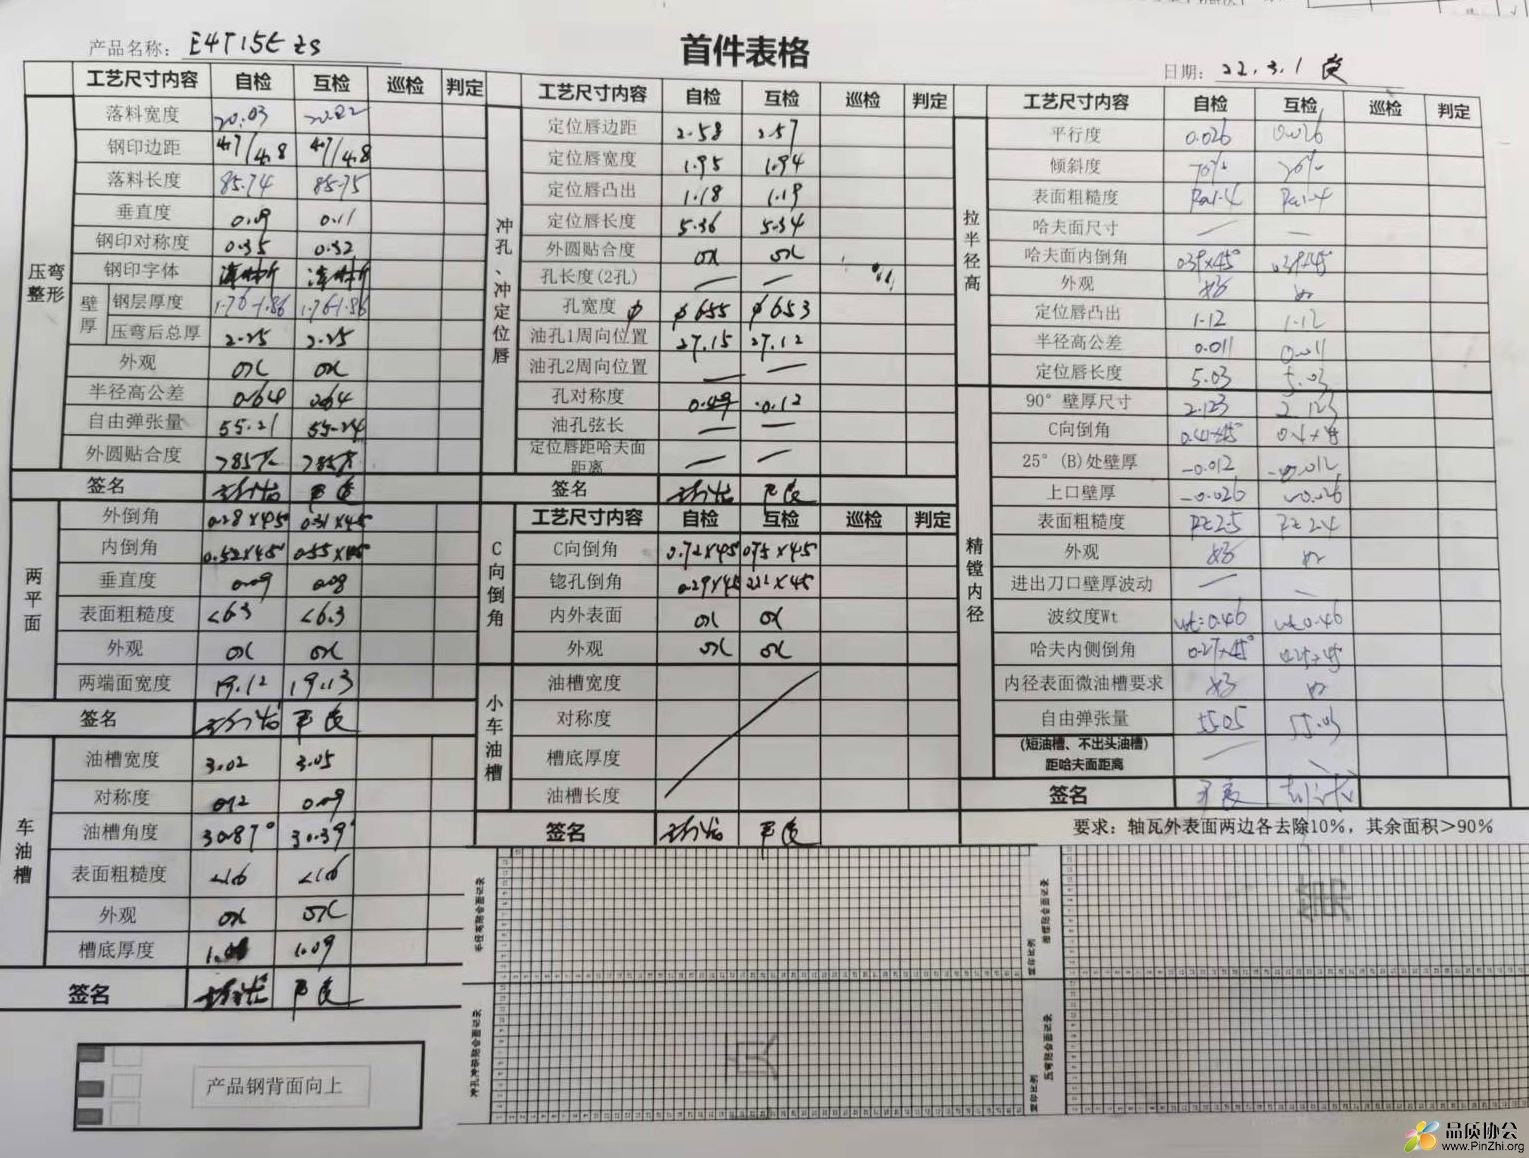 首件表格
产品名称: E4T15E ZS
日期: 22.3.1
工艺尺寸内容 自检 互检 巡检 判定
压弯整形
落料宽度 20.03
钢印边距 4.7/4.8 4.7/4.8
落料长度 85.74 85.75
垂直度 0.09 0.11
钢印对称度 0.35 0.32
钢印字体 清晰 清晰
壁厚
钢层厚度 1.76-1.86 1.76-1.86
压弯后总厚 2.25 2.25
外观 OK OK
半径高公差 0.64
自由弹张量 55.21 55.24
外圆贴合度 >85% >85%
签名
两平面
外倒角 0.28×45° 0.31×45
内倒角 0.52×45° 0.55×45
垂直度 0.09 0.08
表面粗糙度 <6.3 <6.3
外观 OK OK
两端面宽度 19.12 19.13
签名
车油槽
油槽宽度 3.02 3.05
对称度 0.12 0.09
油槽角度 30.87° 30.39°
表面粗糙度 <1.6 <1.6
外观 OK OK
槽底厚度 1.09
签名
产品钢背面向上
工艺尺寸内容 自检 互检 巡检 判定
冲孔、冲定位唇
定位唇边距 2.58 2.57
定位唇宽度 1.95 1.94
定位唇凸出 1.18 1.19
定位唇长度 5.36 5.34
外圆贴合度 OK OK
孔长度(2孔) — —
孔宽度 φ φ6.55 φ6.53
油孔1周向位置 27.15 27.12
油孔2周向位置 — —
孔对称度 0.12
油孔弦长 — —
定位唇距哈夫面距离 — —
签名
工艺尺寸内容 自检 互检 巡检 判定
C向倒角
C向倒角 0.72×45° 0.75×45
锪孔倒角 0.29×45
内外表面 OK OK
外观 OK OK
小车油槽
油槽宽度
对称度
槽底厚度
油槽长度
签名
工艺尺寸内容 自检 互检 巡检 判定
拉半径高
平行度 0.026 0.026
倾斜度 70%
表面粗糙度 Ra1.4 Ra1.4
哈夫面尺寸 — —
哈夫面内倒角 0.39×45° 0.39×45°
外观 好 好
定位唇凸出 1.12 1.12
半径高公差 0.011 0.011
定位唇长度 5.03 5.03
精镗内径
90°壁厚尺寸 2.123 2.123
C向倒角 0.41×45°
25°(B)处壁厚 -0.012 -0.012
上口壁厚 -0.026 -0.026
表面粗糙度 Rz2.5 Rz2.4
外观 好 好
进出刀口壁厚波动 — —
波纹度Wt Wt:0.46 Wt0.46
哈夫内侧倒角 0.27×45°
内径表面微油槽要求 好 好
自由弹张量 55.05 55.03
(短油槽、不出头油槽)距哈夫面距离 — —
签名
要求: 轴瓦外表面两边各去除10%, 其余面积>90%
品质协会
www.PinZhi.org